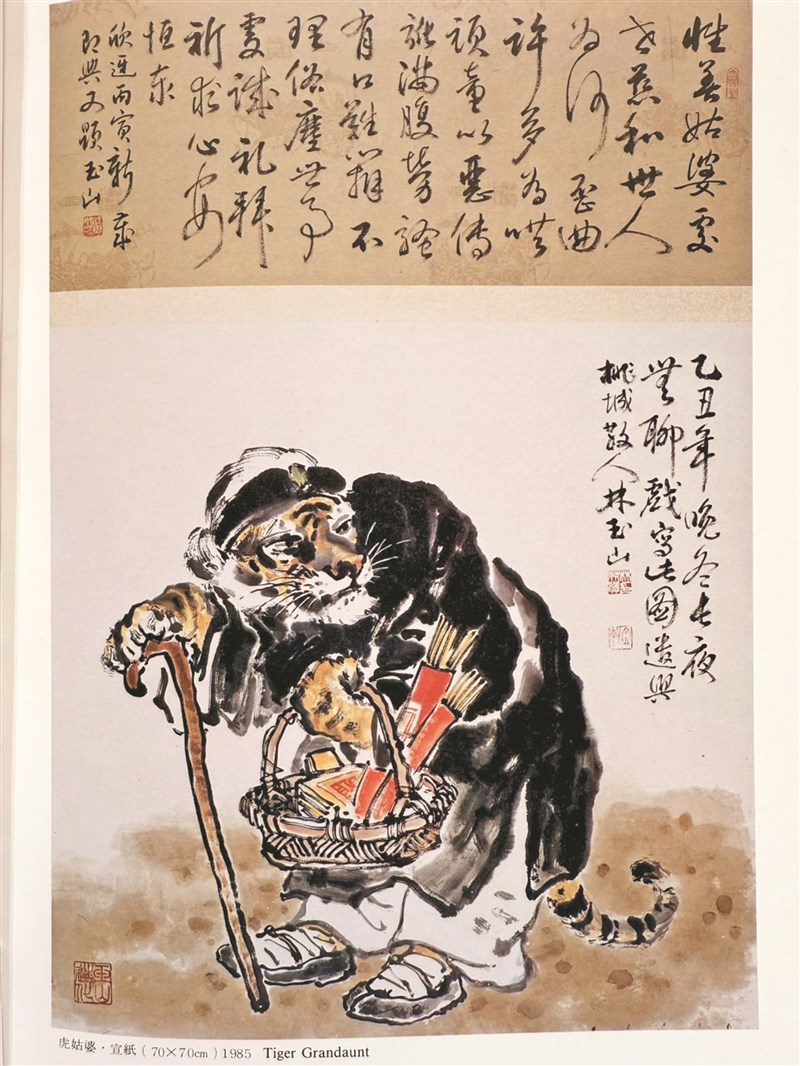 性善姑婆處
世慈和世人
為何歪曲
許多為哄
頑童以惡傳
說滿腹勞騷
有口難辯不
理俗塵世事
虔誠礼拜
祈求心安
恒泰
欣逢丙寅新歲
即興又題玉山
乙丑年晚冬長夜
無聊戲寫此圖遣興
桃城散人林玉山
虎姑婆・宣紙(70×70cm)1985 Tiger Grandaunt